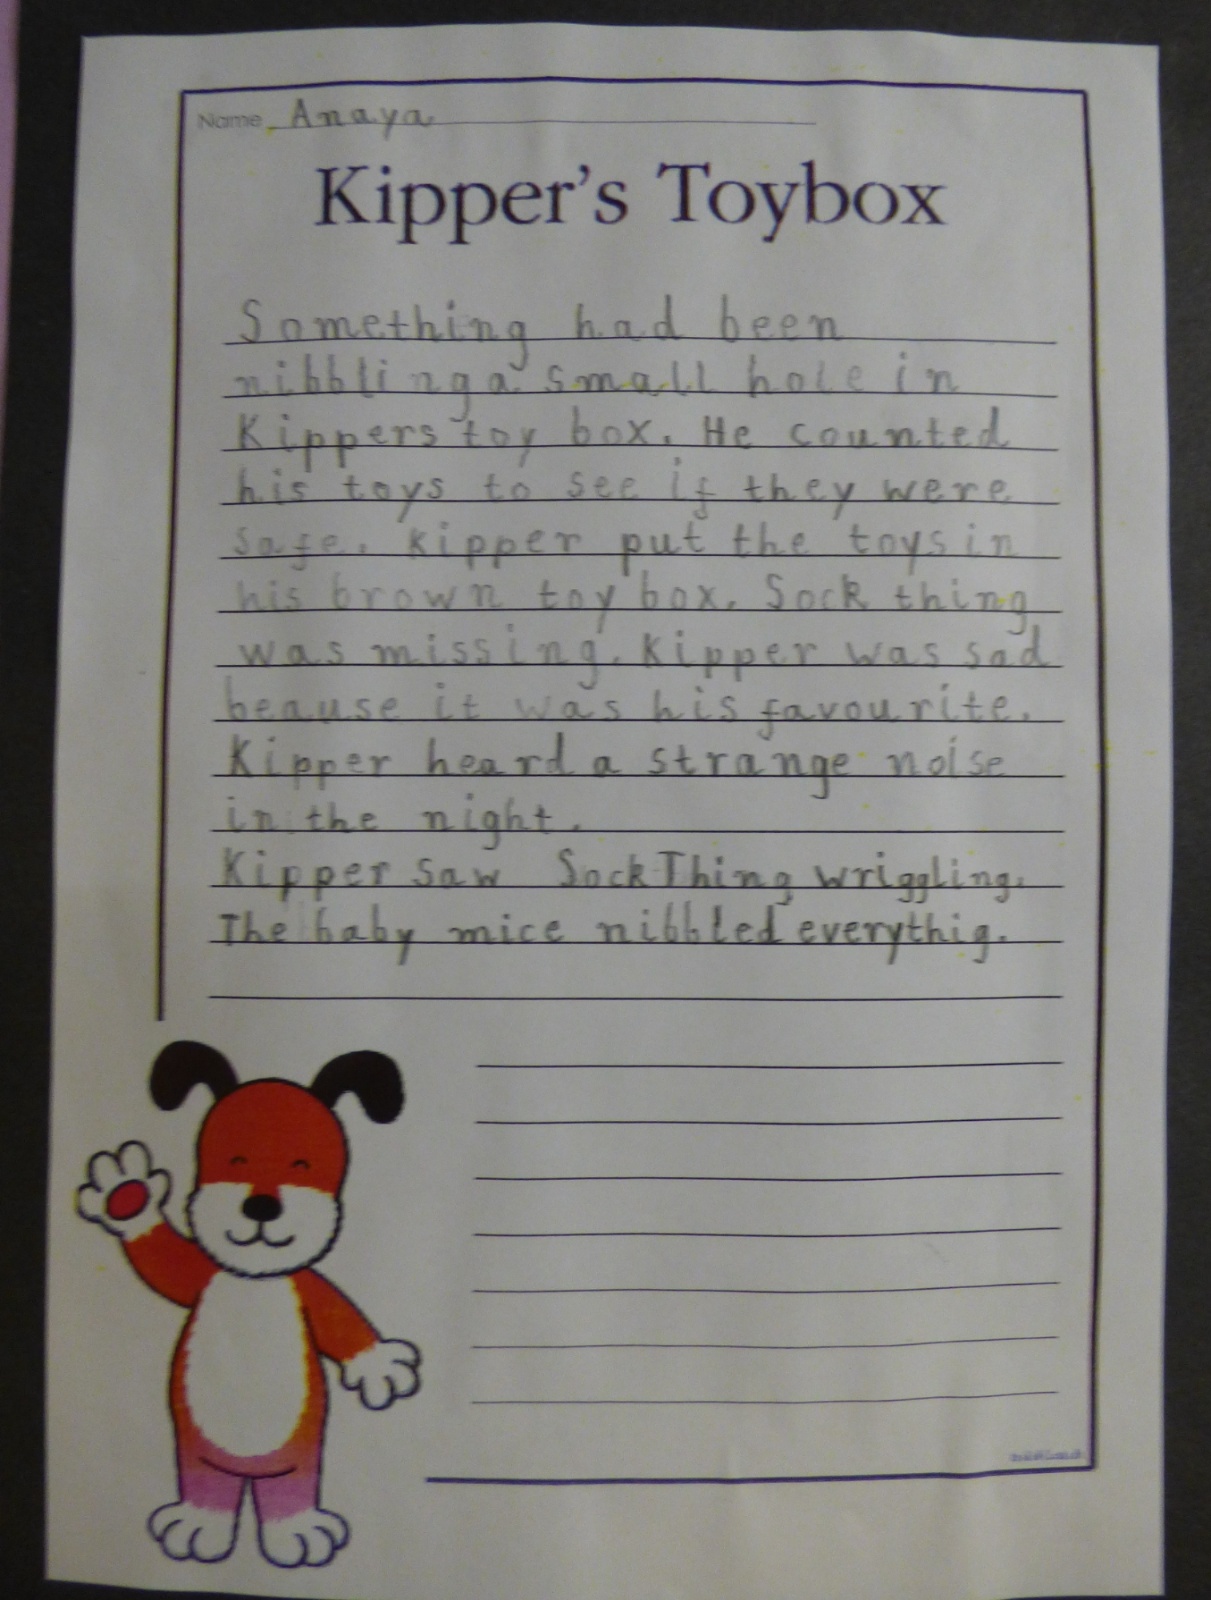 Name Anaya
Kipper's Toybox
Something had been
nibbling a small hole in
Kippers toy box. He counted
his toys to see if they were
safe. Kipper put the toys in
his brown toy box. Sock thing
was missing. Kipper was sad
beause it was his favourite.
Kipper heard a strange noise
in the night.
Kipper saw Sock Thing wriggling.
The baby mice nibbled everythig.